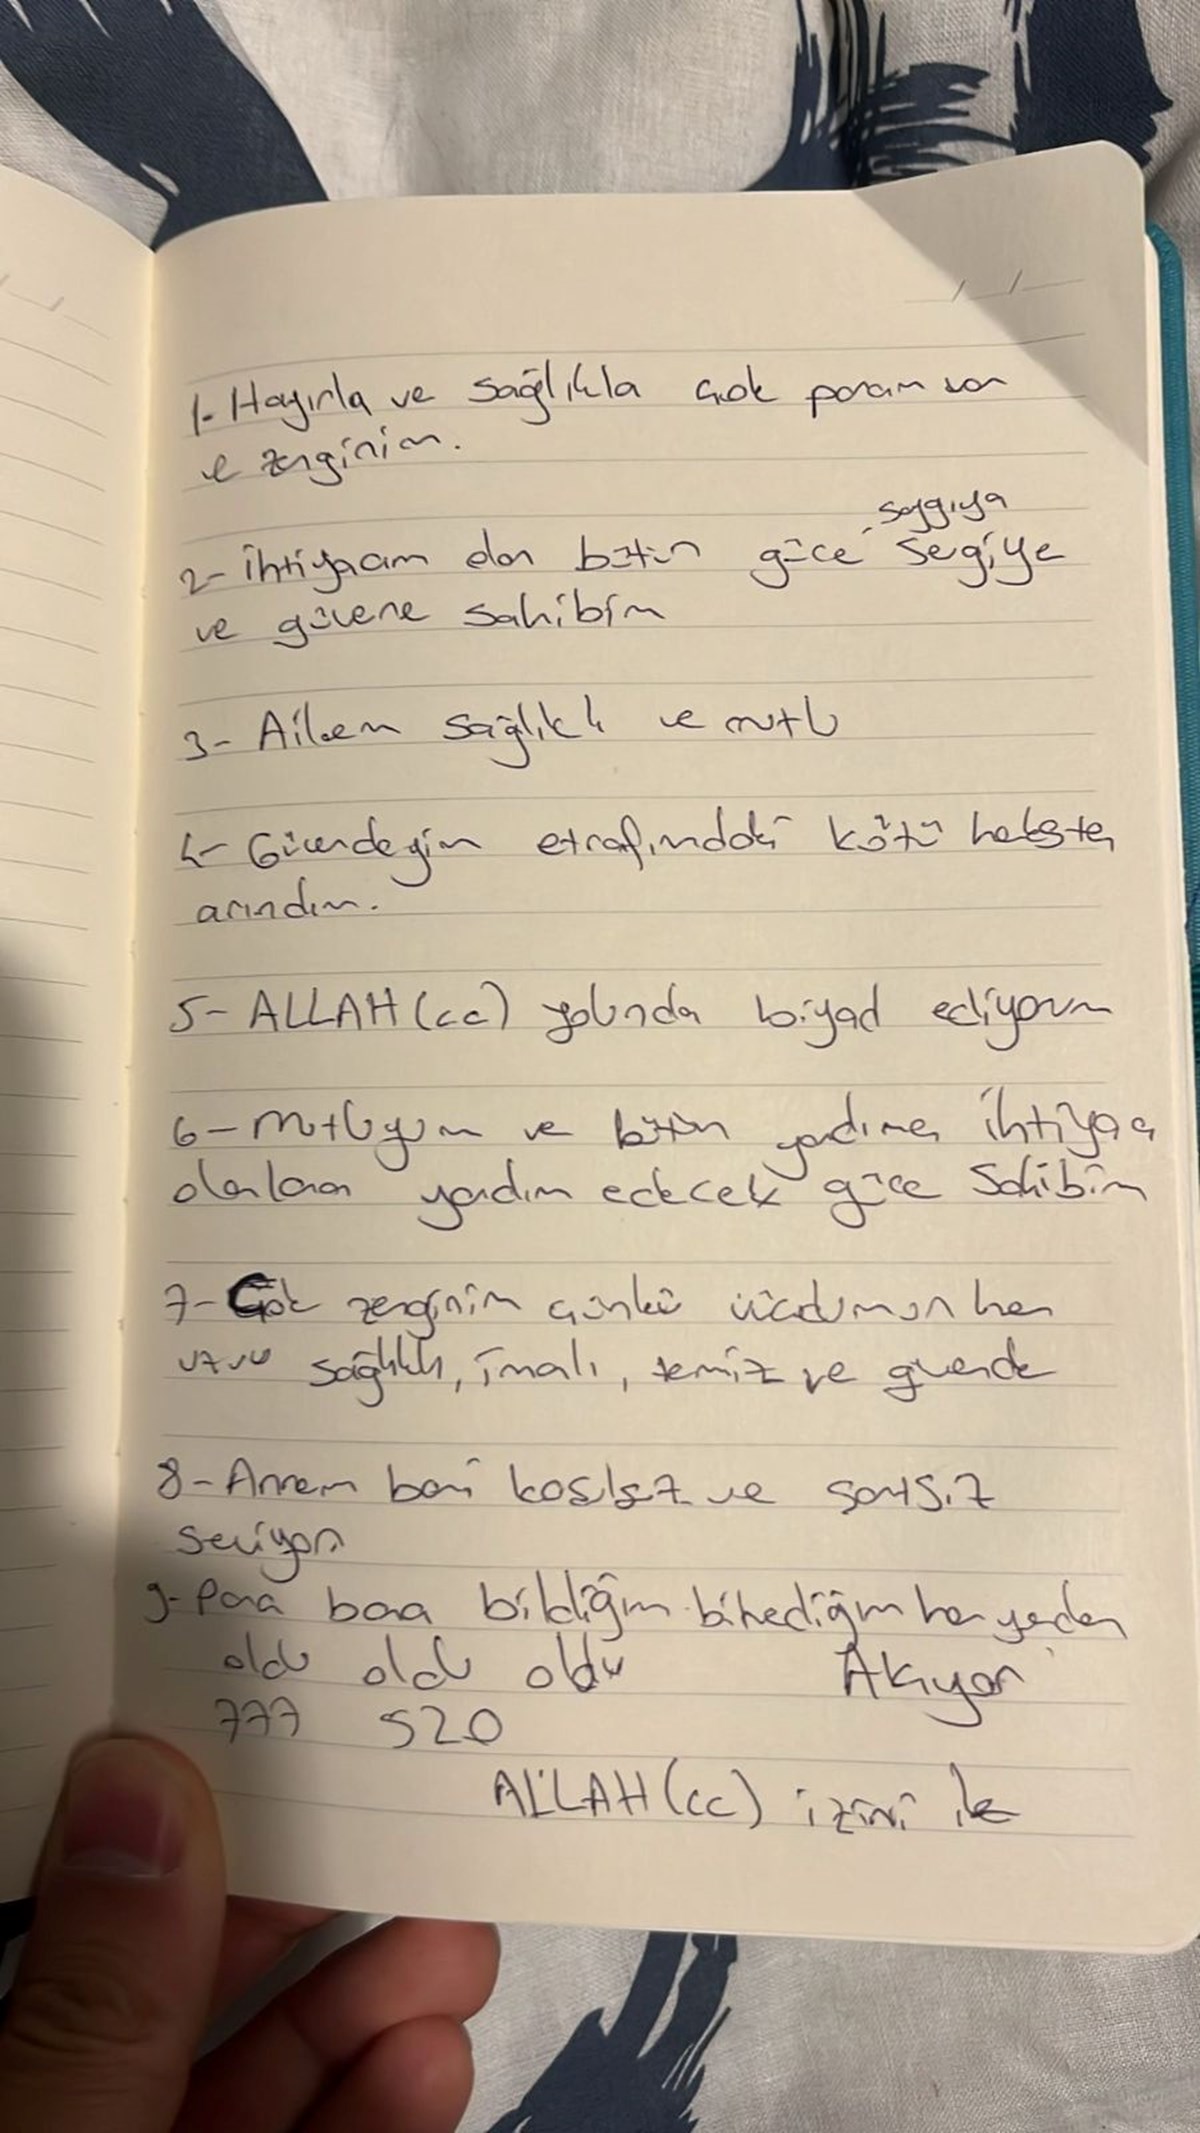 1- Hayırla ve sağlıkla çok param var
ve zenginim.
saygıya
2- İhtiyacım olan bütün güce sevgiye
ve güvene sahibim
3- Ailem sağlıklı ve mutlu
4- Güvendeyim etrafımdaki kötü
arındım.
5- ALLAH(cc) yolunda biyad ediyorum
6- Mutluyum ve bütün yardıma ihtiyacı
olanlara yardım edecek güce sahibim
7- Çok zenginim çünkü vücudumun her
uzvu sağlıklı, imanlı, temiz ve güvende
8- Annem beni koşulsuz ve şartsız
seviyor
9- Para bana bildiğim bilmediğim her yerden
oldu oldu oldu Akıyor
777 520
ALLAH(cc) izini ile